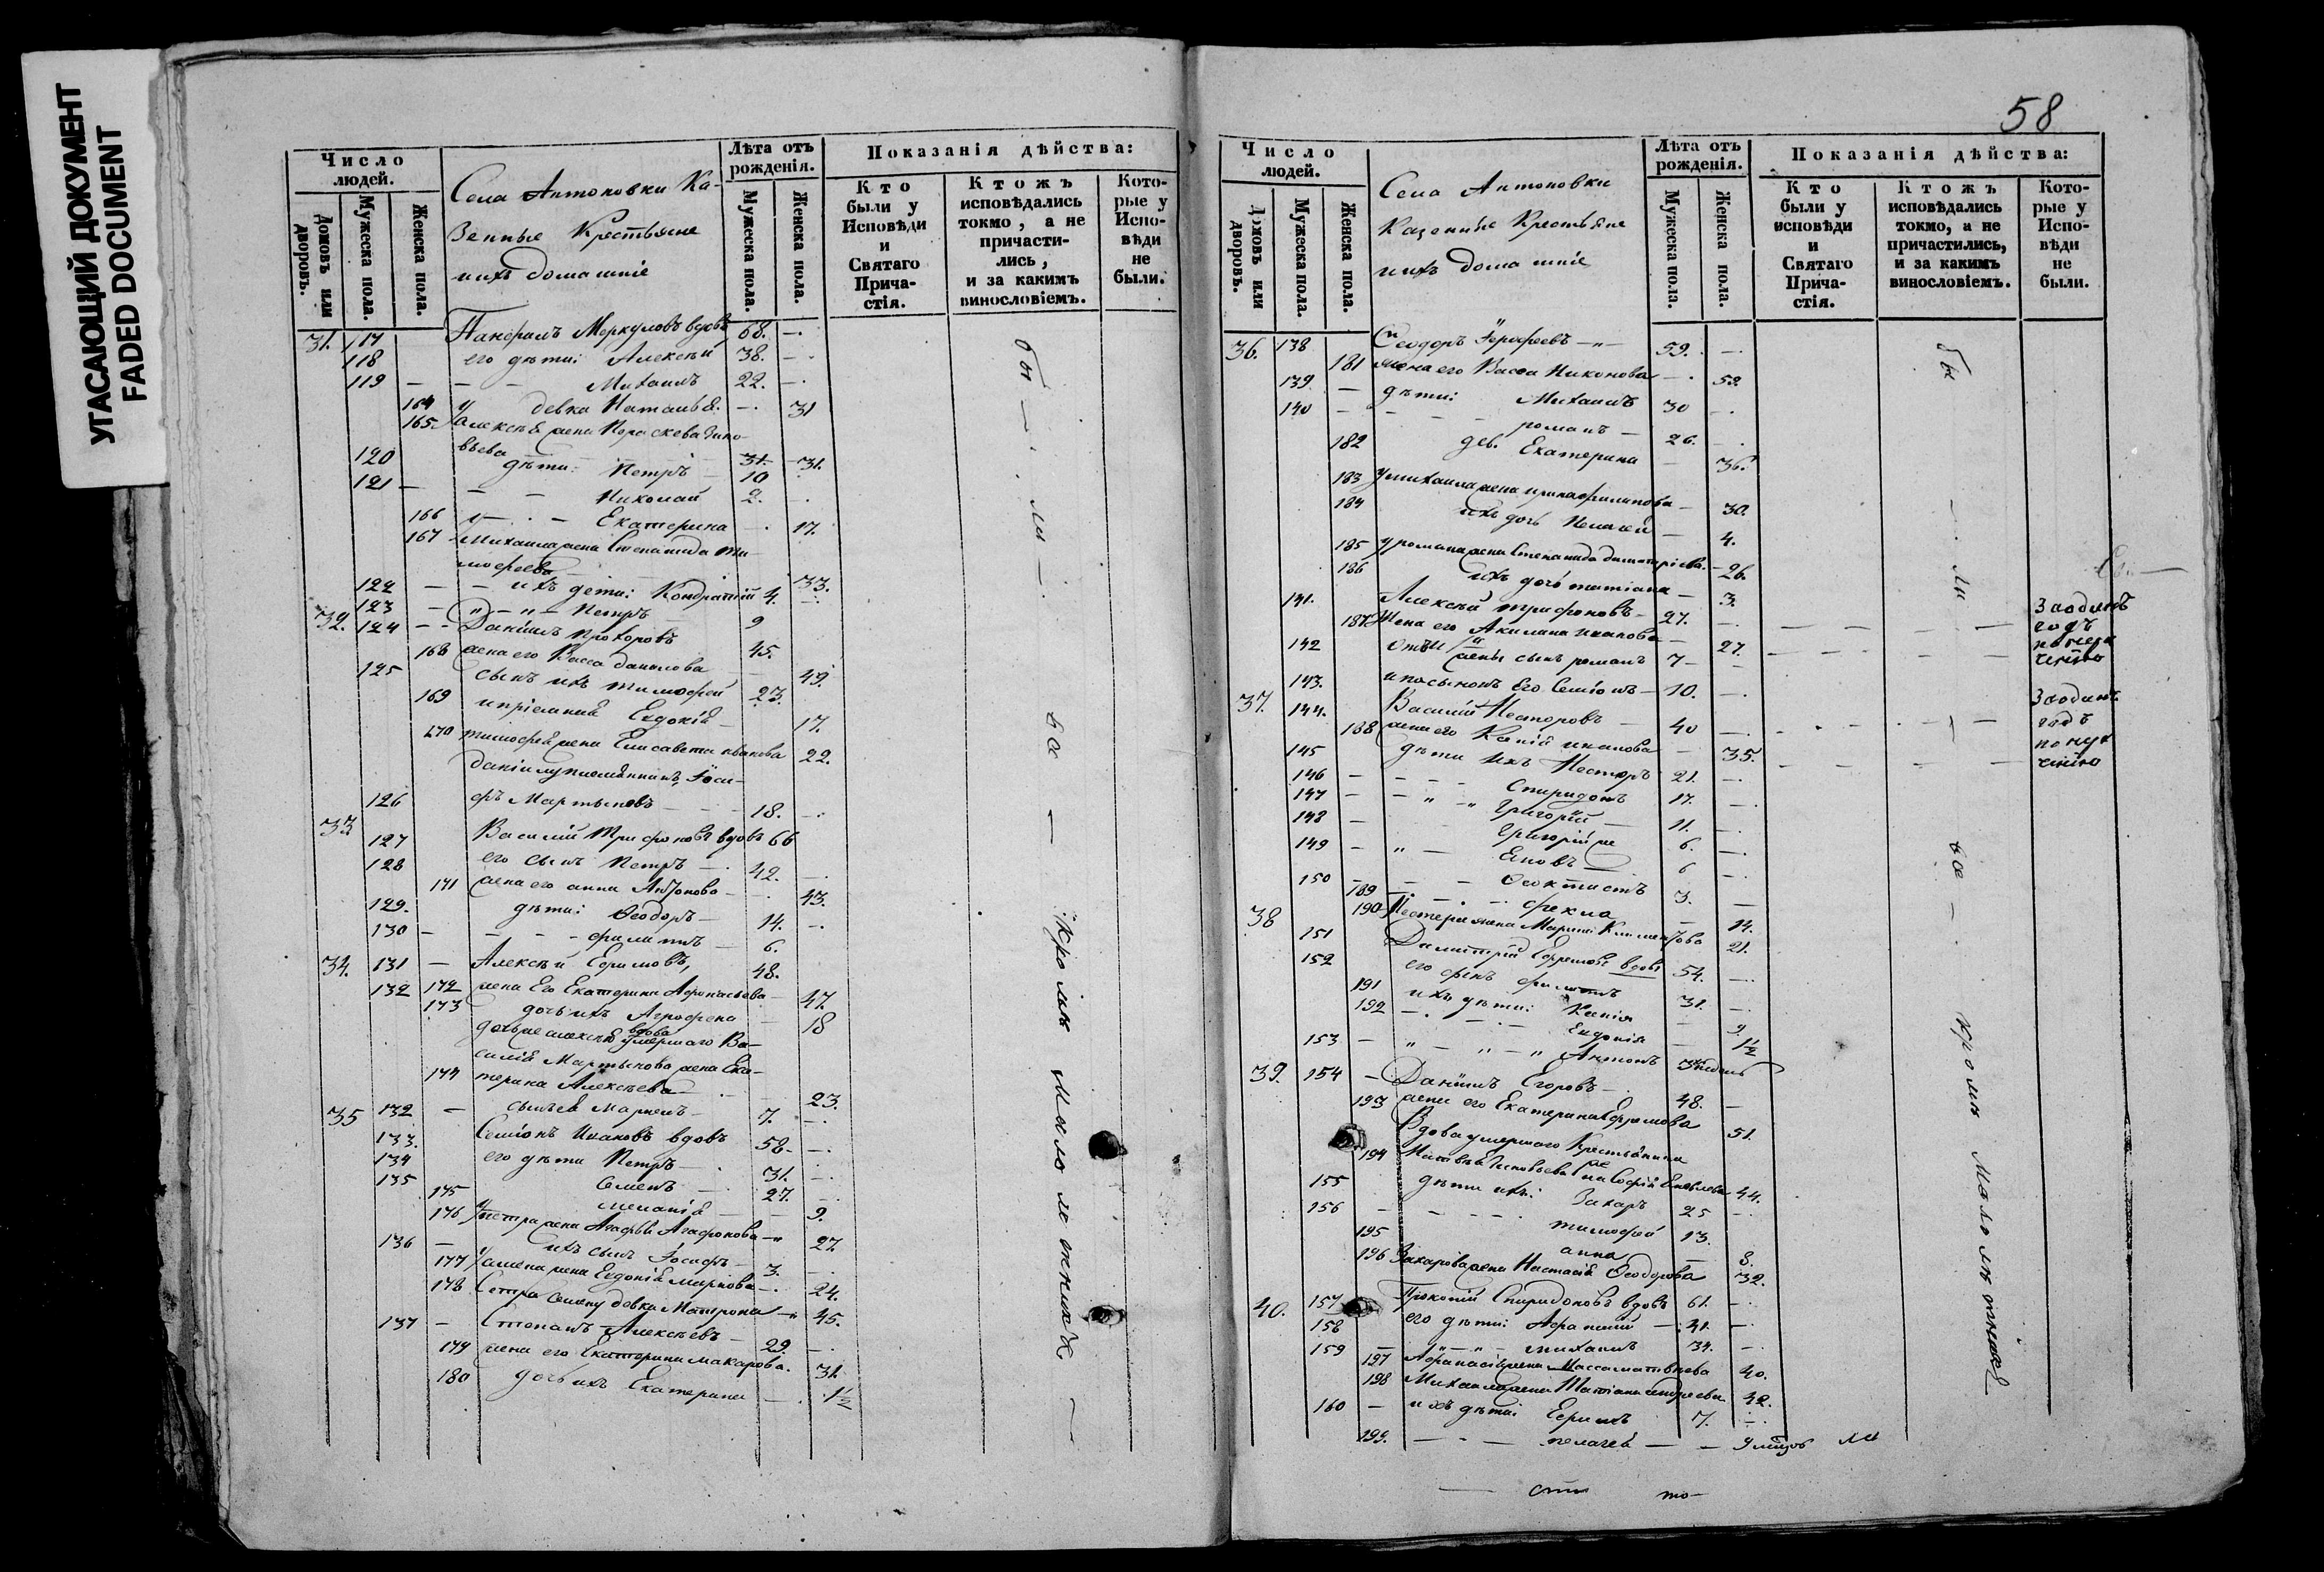 УГАСАЮЩИЙ ДОКУМЕНТ
FADED DOCUMENT
Число людей.
Домовъ или дворовъ.
Мужеска пола.
Женска пола.
Села Антоновки Ка-
зенные Крестьяне
ихъ домашніе
Лѣта отъ рожденія.
Мужеска пола.
Женска пола.
Показанія дѣйства:
Кто были у Исповѣди и Святаго Прича-стія.
Ктожъ исповѣдались токмо, а не причасти-лись, и за какимъ винословіемъ.
Кото-рые у Испо-вѣди не были.
31. 117 Панфилъ Меркуловъ вдовъ 68. —.
118 его дѣти: Алексѣй 38. —.
119 — — — Михаилъ 22. —.
164 девка Наталья. —. 31
165. Алексѣя жена Параскева Зино-
вьева 31. 31.
120 дѣти: Петръ 10
121 — — — Николай 2. —.
166 — Екатерина —. 17.
167 Михаила жена Степанида Ти-
мофеева 33.
122 — — ихъ дети: Кондратій 4. —.
123 — „ — „ — Петръ 9
32. 124 — — Даніилъ Прохоровъ 45.
168 жена его Васса Данилова 49.
125 сынъ ихъ Тимофей 23.
169 Евдокія — 17.
170 Тимофея жена Елисавета Иванова 22.
Даніилу племянникъ Іоси-
126 фъ Мартыновъ 18. —.
33 127 Василій Трифоновъ вдовъ 66
128 его сынъ Петръ —. 42. —.
171 жена его Анна Антонова — 43.
129. дѣти: Ѳеодоръ — 14. —.
130 — — — филатъ — 6.
34. 131 — Алексѣй Ефимовъ, 48.
132 172 жена Его Екатерина Афонасьева — 47.
173 дочь ихъ Агрофена 18
вдова
умершаго Ва-
силія Мартынова жена Ека-
174 терина Алексѣева 23.
35 132 — Маркелъ — 7. —.
133. Семіонъ Ивановъ вдовъ 58. —.
134 его дѣти Петръ —. 31. —.
135 Семенъ —. 27. —.
175 меланія — — 9.
176 петра жена Агафья Агафонова — 27.
136 — ихъ сынъ Іосифъ — 3. —.
177 Семена жена Евдокія Маркова —. 24.
178 Сестра Семену девка Матрона — 45.
137 — Степанъ Алексѣевъ — 29. —.
179 жена его Екатерина Макарова. 31.
180 дочь ихъ Екатерина —. 1½
бы — ли — вси — Кромѣ малолетнихъ —
58
Число людей.
Домовъ или дворовъ.
Мужеска пола.
Женска пола.
Села Антоновки
Казенные Крестьяне
ихъ домашніе
Лѣта отъ рожденія.
Мужеска пола.
Женска пола.
Показанія дѣйства:
Кто были у исповѣди и Святаго Прича-стія.
Ктожъ исповѣдались токмо, а не причастились, и за какимъ винословіемъ.
Кото-рые у Испо-вѣди не были.
36. 138 Ѳеодоръ Іерофеевъ — 59. —.
181 жена его Васса Никонова —. 52.
139 — дѣти: Михаилъ 30 —.
140 — — — романъ — 26. —.
182 дев. Екатерина — 36.
183 у михаила жена ирина филипова — 30.
184 ихъ дочь Пелагея — 4.
185 у романа жена Степанида димитріева. — 26.
186 ихъ дочь татіана — 3.
141. Алексѣй трифоновъ — 27. —.
187. Жена его Акилина иванова — 27.
142 сынъ романъ 7 —
143. и пасынокъ Его Семіонъ — 10. —.
За одинъ
годъ
37. 144. Василій Несторовъ — 40 —.
188 жена его Ксенія иванова — 35.
145 дѣти ихъ Несторъ 21. —.
146 — — — Спиридонъ 17. —.
147 — „ „ Григорій — 11. —.
148 — Григорій же 6. —.
149 — „ — Іяковъ — 6 —.
150 — — — Ѳеоктистъ 3. —
189 — фекла — 14.
190 Нестера жена Марина Климентова 21.
За одинъ
годъ
38 151 Димитрій Ефремовъ вдовъ 54. —.
152 его сынъ филатъ 31. —.
191 ихъ дѣти: Ксенія — 9.
192 —. —. — Евдокія — 1½
153 — „ — „ — „ Антонъ
39. 154 — Даніилъ Егоровъ —. 48. —
193 жена его Екатерина Ефремова 51.
Вдова умершаго Крестьянина
194 Матвѣя Зиновьева Софія Яковлева 44.
155 дѣти ихъ: Захаръ 25 —.
156 — — — тимофей 13.
195 анна — 8.
196 Захарова жена Настасія Ѳеодорова 32.
40. 157 Прокопій Спиридоновъ вдовъ 61. —.
158 его дѣти: Афанасій — 41. —.
159 — „ — „ — михаилъ 34. —.
197 Афанасія жена Васса матвѣева 40.
198 Михаила жена Татіана андреева 42.
160 — ихъ дѣти: Ефимъ 7. —.
199. — — — пелагея — —
бы — ли — вси — кромѣ малолѣтнихъ